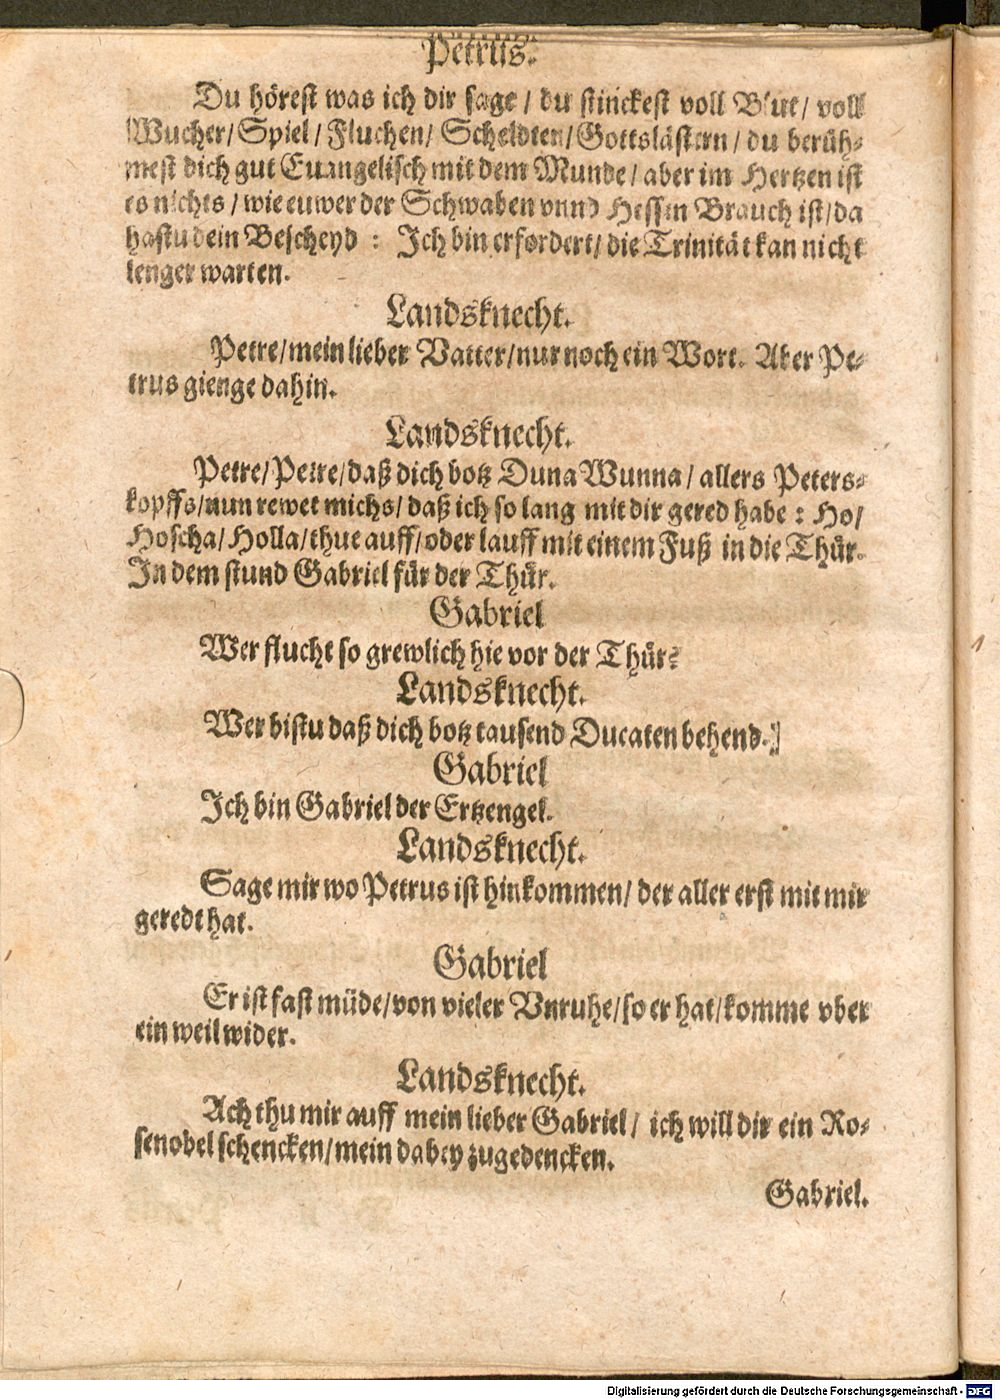 Petrus.
Du hörest was ich dir sage / du stinckest voll Blut / voll
Wucher / Spiel / Fluchen / Scheldten / Gottslästern / du berüh-
mest dich gut Euangelisch mit dem Munde / aber im Hertzen ist
es nichts / wie euwer der Schwaben vnnd Hessen Brauch ist / da
hastu dein Bescheyd : Ich bin erfordert / die Trinität kan nicht
lenger warten.
Landsknecht.
Petre / mein lieber Vatter / nur noch ein Wort. Aber Pe-
trus gienge dahin.
Landsknecht.
Petre / Petre / daß dich botz Duna Wunna / allers Peters-
kopffs / nun rewet michs / daß ich so lang mit dir gered habe : Ho /
Hoscha / Holla / thue auff / oder lauff mit einem Fuß in die Thür.
In dem stund Gabriel für der Thür.
Gabriel
Wer flucht so grewlich hie vor der Thür?
Landsknecht.
Wer bistu daß dich botz tausend Ducaten behend.
Gabriel
Ich bin Gabriel der Ertzengel.
Landsknecht.
Sage mir wo Petrus ist hinkommen / der aller erst mit mir
geredt hat.
Gabriel
Er ist fast müde / von vieler Vnruhe / so er hat / komme vber
ein weil wider.
Landsknecht.
Ach thu mir auff mein lieber Gabriel / ich will dir ein Ro-
senobel schencken / mein dabey zugedencken.
Gabriel.
Digitalisierung gefördert durch die Deutsche Forschungsgemeinschaft - DFG